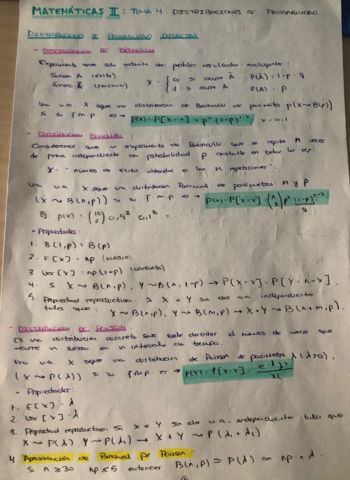 MATEMÁTICAS II: TEMA 4 DISTRIBUCIONES DE PROBABILIDAD
DISTRIBUCIONES DE PROBABILIDAD DISCRETAS
- DISTRIBUCIÓN DE BERNOULLI
Experimento que solo admite de posibles resultados excluyente:
Suceso A (éxito)
Suceso (fracaso)
X = { 0 si ocurre Ā P(Ā) = 1-p = q
1 si ocurre A P(A) = P
Una v.a. X sigue una distribución de Bernoulli de parámetro p (X~B(p))
si su f.m.p. es → P(x) = P[X=x] = pˣ (1-p)¹⁻ˣ x = 0,1
- DISTRIBUCIÓN BINOMIAL
Consideremos que un experimento de Bernoulli que se repite n veces
de forma independiente con probabilidad P constante en todas las rep.
X: "número de éxitos obtenidos en las n repeticiones"
Una v.a. X sigue una distribución Binomial de parámetros n y P
(X ~ B(n,p)) si su f.m.p. es → P(x) = P[X=x] = (n x) pˣ (1-p)ⁿ⁻ˣ
Ej: p(x) = 0,9² 0,1⁸ =
- Propiedades:
1. B(1,p) = B(p)
2. E[X] = np (media)
3. Var[X] = np(1-p) (varianza)
4. Si X ~ B(n,p), Y ~ B(n,1-p) → P[X=x] = P[Y=n-x]
5. Propiedad reproductiva: Si X e Y son dos v.a. independientes
tales que: X ~ B(n,p), Y ~ B(m,p) → X+Y ~ B(n+m,p).
- DISTRIBUCIÓN DE POISSON
Es una distribución discreta que suele describir el número de veces que
ocurre un suceso en un intervalo de tiempo.
Una v.a. X sigue una distribución de Poisson de parámetro λ (λ>0),
(X ~ P(λ)) si su f.m.p. es → P(x) = P[X=x] = e^-λ λˣ / x!
- Propiedades:
1. E[X] = λ
2. Var[X] = λ
3. Propiedad reproductiva: Si X e Y son dos v.a. independientes tales que
X ~ P(λ), Y ~ P(λ₁) → X+Y ~ P(λ+λ₁)
4 Aproximación de Binomial por Poisson
Si n ≥ 30 np ≤ 5 entonces B(n,p) ≃ P(λ) con np = λ.